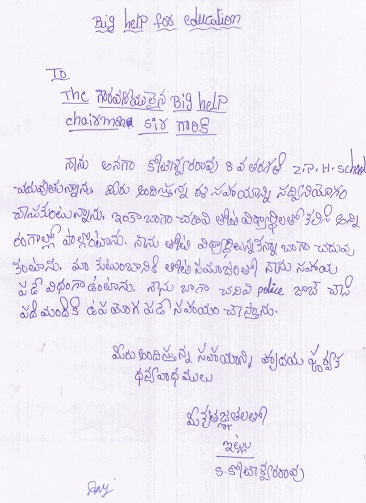 Big help for education
To
The గౌరవనీయులైన Big help
chairman sir గారికి
నేను అనగా కోటేశ్వరరావు 8 వ తరగతి Z.P.H. School
చదువుతున్నాను. మీరు అందిస్తున్న ఈ సహాయాన్ని సద్వినియోగం
చేసుకుంటున్నాను. ఇంకా బాగా చదివి తోటి విద్యార్థులతో కలిసి అన్ని
రంగాల్లో పాల్గొంటాను. నేను తోటి విద్యార్థి బాగా చదువు
కుంటాను. మా కుటుంబానికి తోటి సమాజంలో నేను సహాయ
పడే విధంగా ఉంటాను. నేను బాగా చదివి police జాబ్ చేసి
పది మందికి ఉపయోగ పడే సహాయం చేస్తాను.
మీరు అందిస్తున్న సహాయాన్ని హృదయ పూర్వక
ధన్యవాదములు
మీ కృతజ్ఞతలతో
ఇట్లు
S. కోటేశ్వరరావు